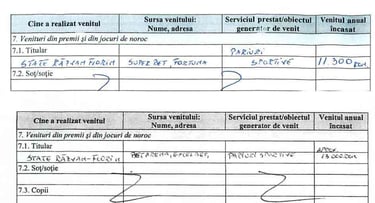 Cine a realizat venitul Sursa venitului: Nume, adresa Serviciul prestat/obiectul generator de venit Venitul anual încasat
7. Venituri din premii și din jocuri de noroc
7.1. Titular PARIURI
STATE RĂZVAN FLORIN SUPERBET FORTUNA SPORTIVE 11 300 RON
7.2. Soț/soție
Cine a realizat venitul Sursa venitului: Nume, adresa Serviciul prestat/obiectul generator de venit Venitul anual încasat
7. Venituri din premii și din jocuri de noroc
7.1. Titular
STATE RĂZVAN-FLORIN PARIURI SPORTIVE 13 000 RON
7.2. Soț/soție
7.3. Copii